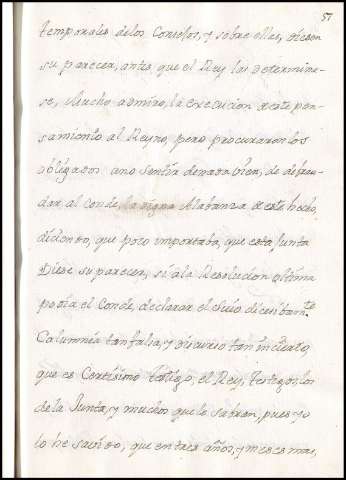 57
temporales delos Consejos, y sobre ellas, diesen
su parecer, antes que el Rey las determina-
se, Mucho admiro, la execucion deste pen-
samiento al Reyno, pero procuraron los
oblegados ano sentir denada bien, de defrau-
dar al Conde, la digna Alabanza deste hecho,
diciendo, que poco importaba, que esta Junta
Diese su parecer, si ála Resolucion ultima
podia el Conde, declarar el suio
Calumnia tan falsa, y discurso tan incierto,
que es Certisimo testigo, el Rey, testigos, los
dela Junta, y muchos que lo saben, pues yo
lo he savido, que en tres años, y meses mas,